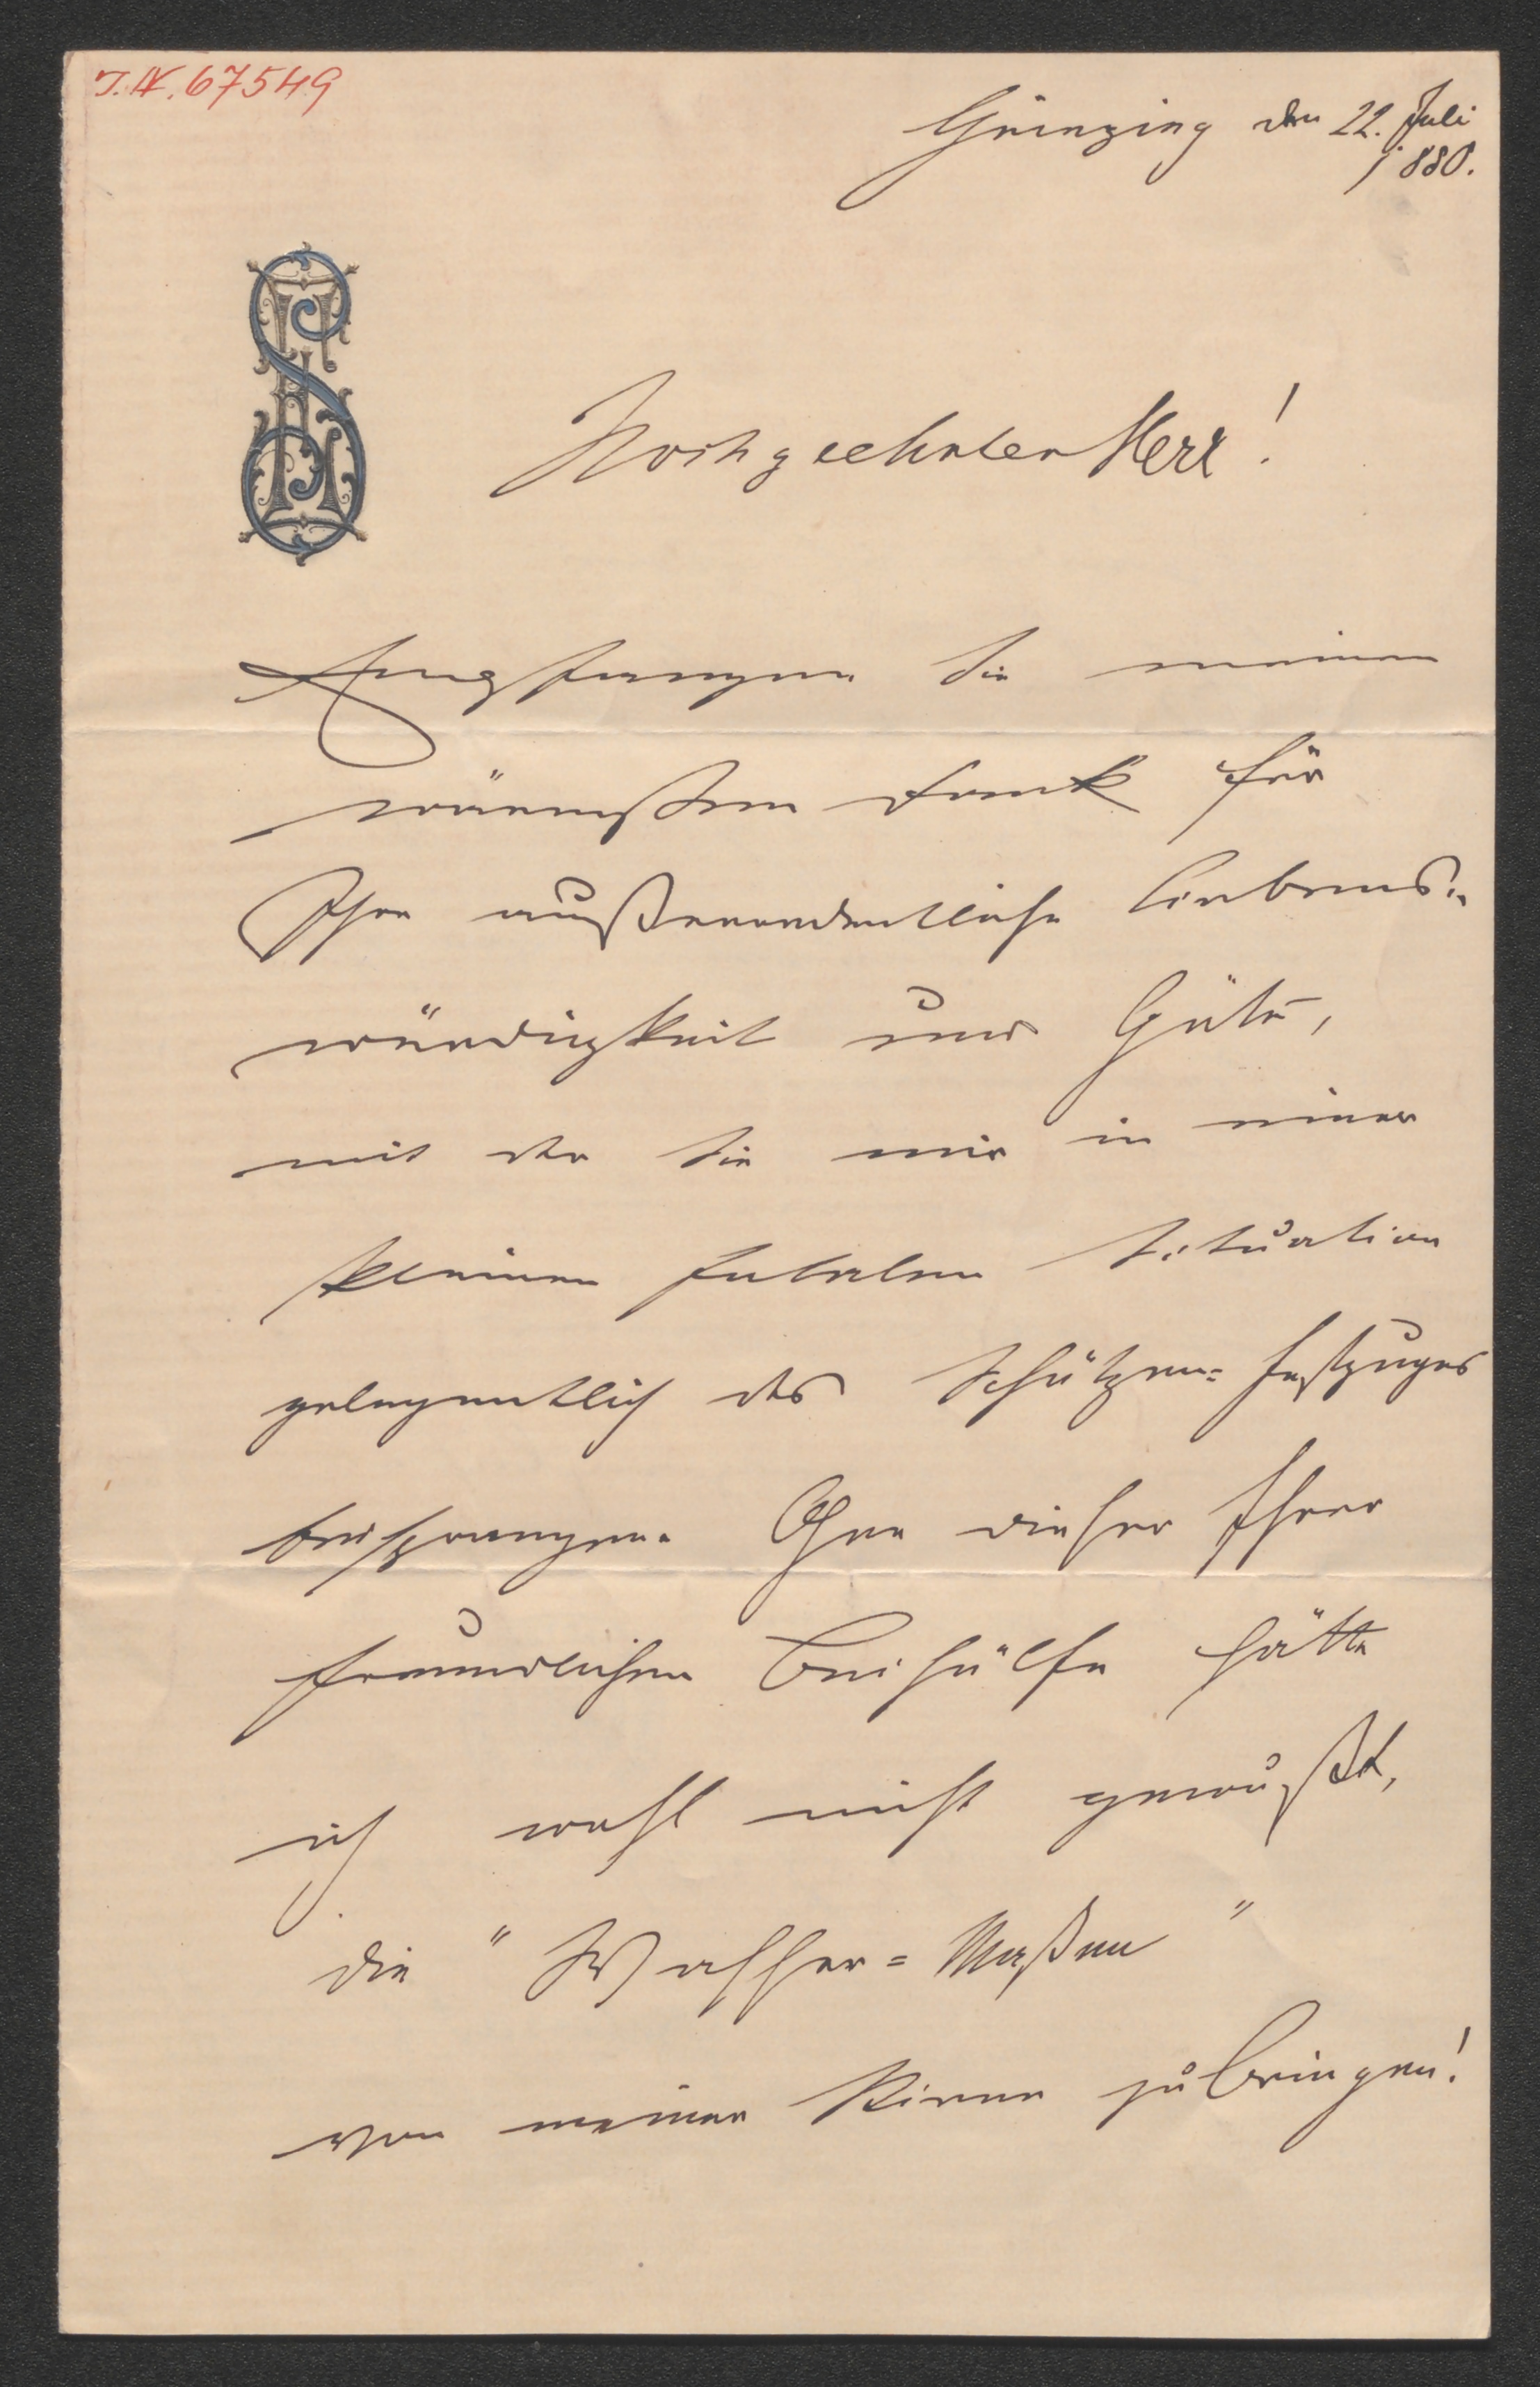 I.N. 67549
Grinzing den 22. Juli
1880.
Hochgeehrter Herr!
Empfangen Sie meinen
wärmsten Dank für
Ihre außerordentliche Liebens-
würdigkeit und Güte,
mit der Sie mir in einer
kleinen fatalen Situation
gelegentlich des Schützen=Festzuges
beisprangen. Ohne dieser Ihrer
freundlichen Beihülfe hätte
ich wohl nicht gewußt,
die "Wasser=Maßen"
von meiner zu bringen!